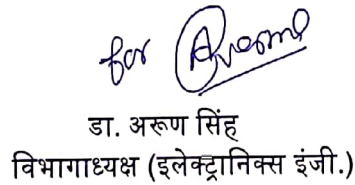 for
डा. अरूण सिंह
विभागाध्यक्ष (इलेक्ट्रानिक्स इंजी.)